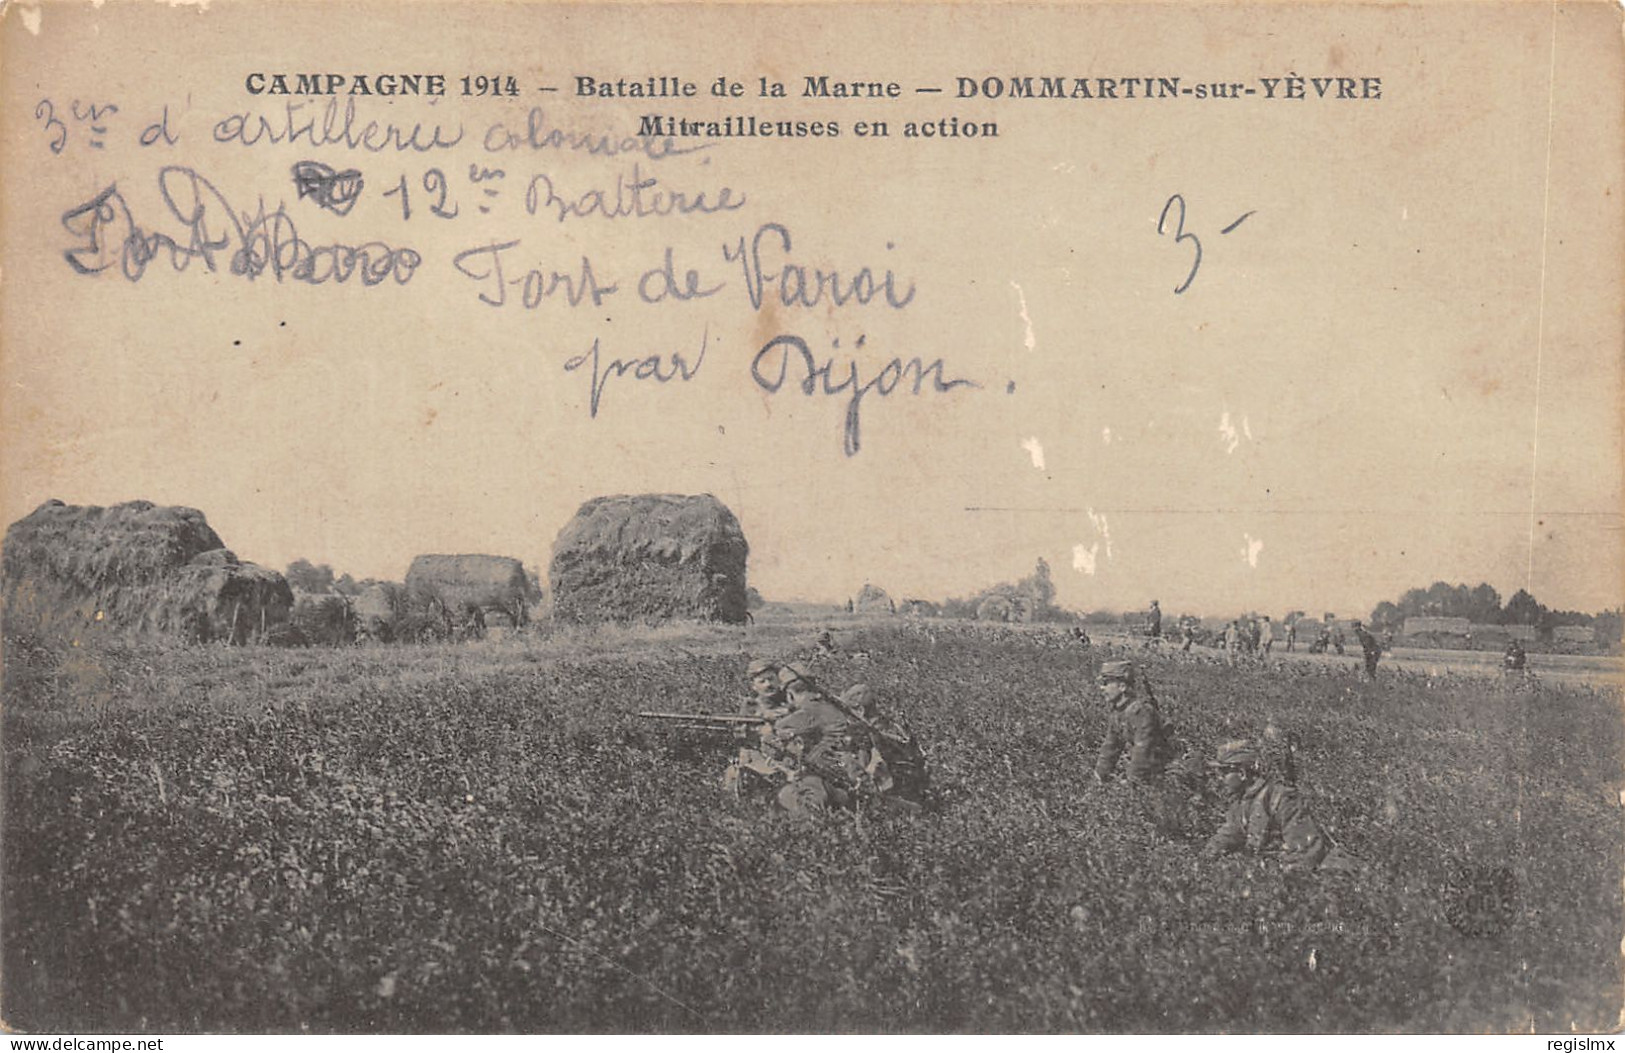 CAMPAGNE 1914 – Bataille de la Marne – DOMMARTIN-sur-YÈVRE
Mitrailleuses en action
3en d'artillerie coloniale.
12en Battterie
Fort de Varoi
par Dijon.
3-
www.delcampe.net
regislmx